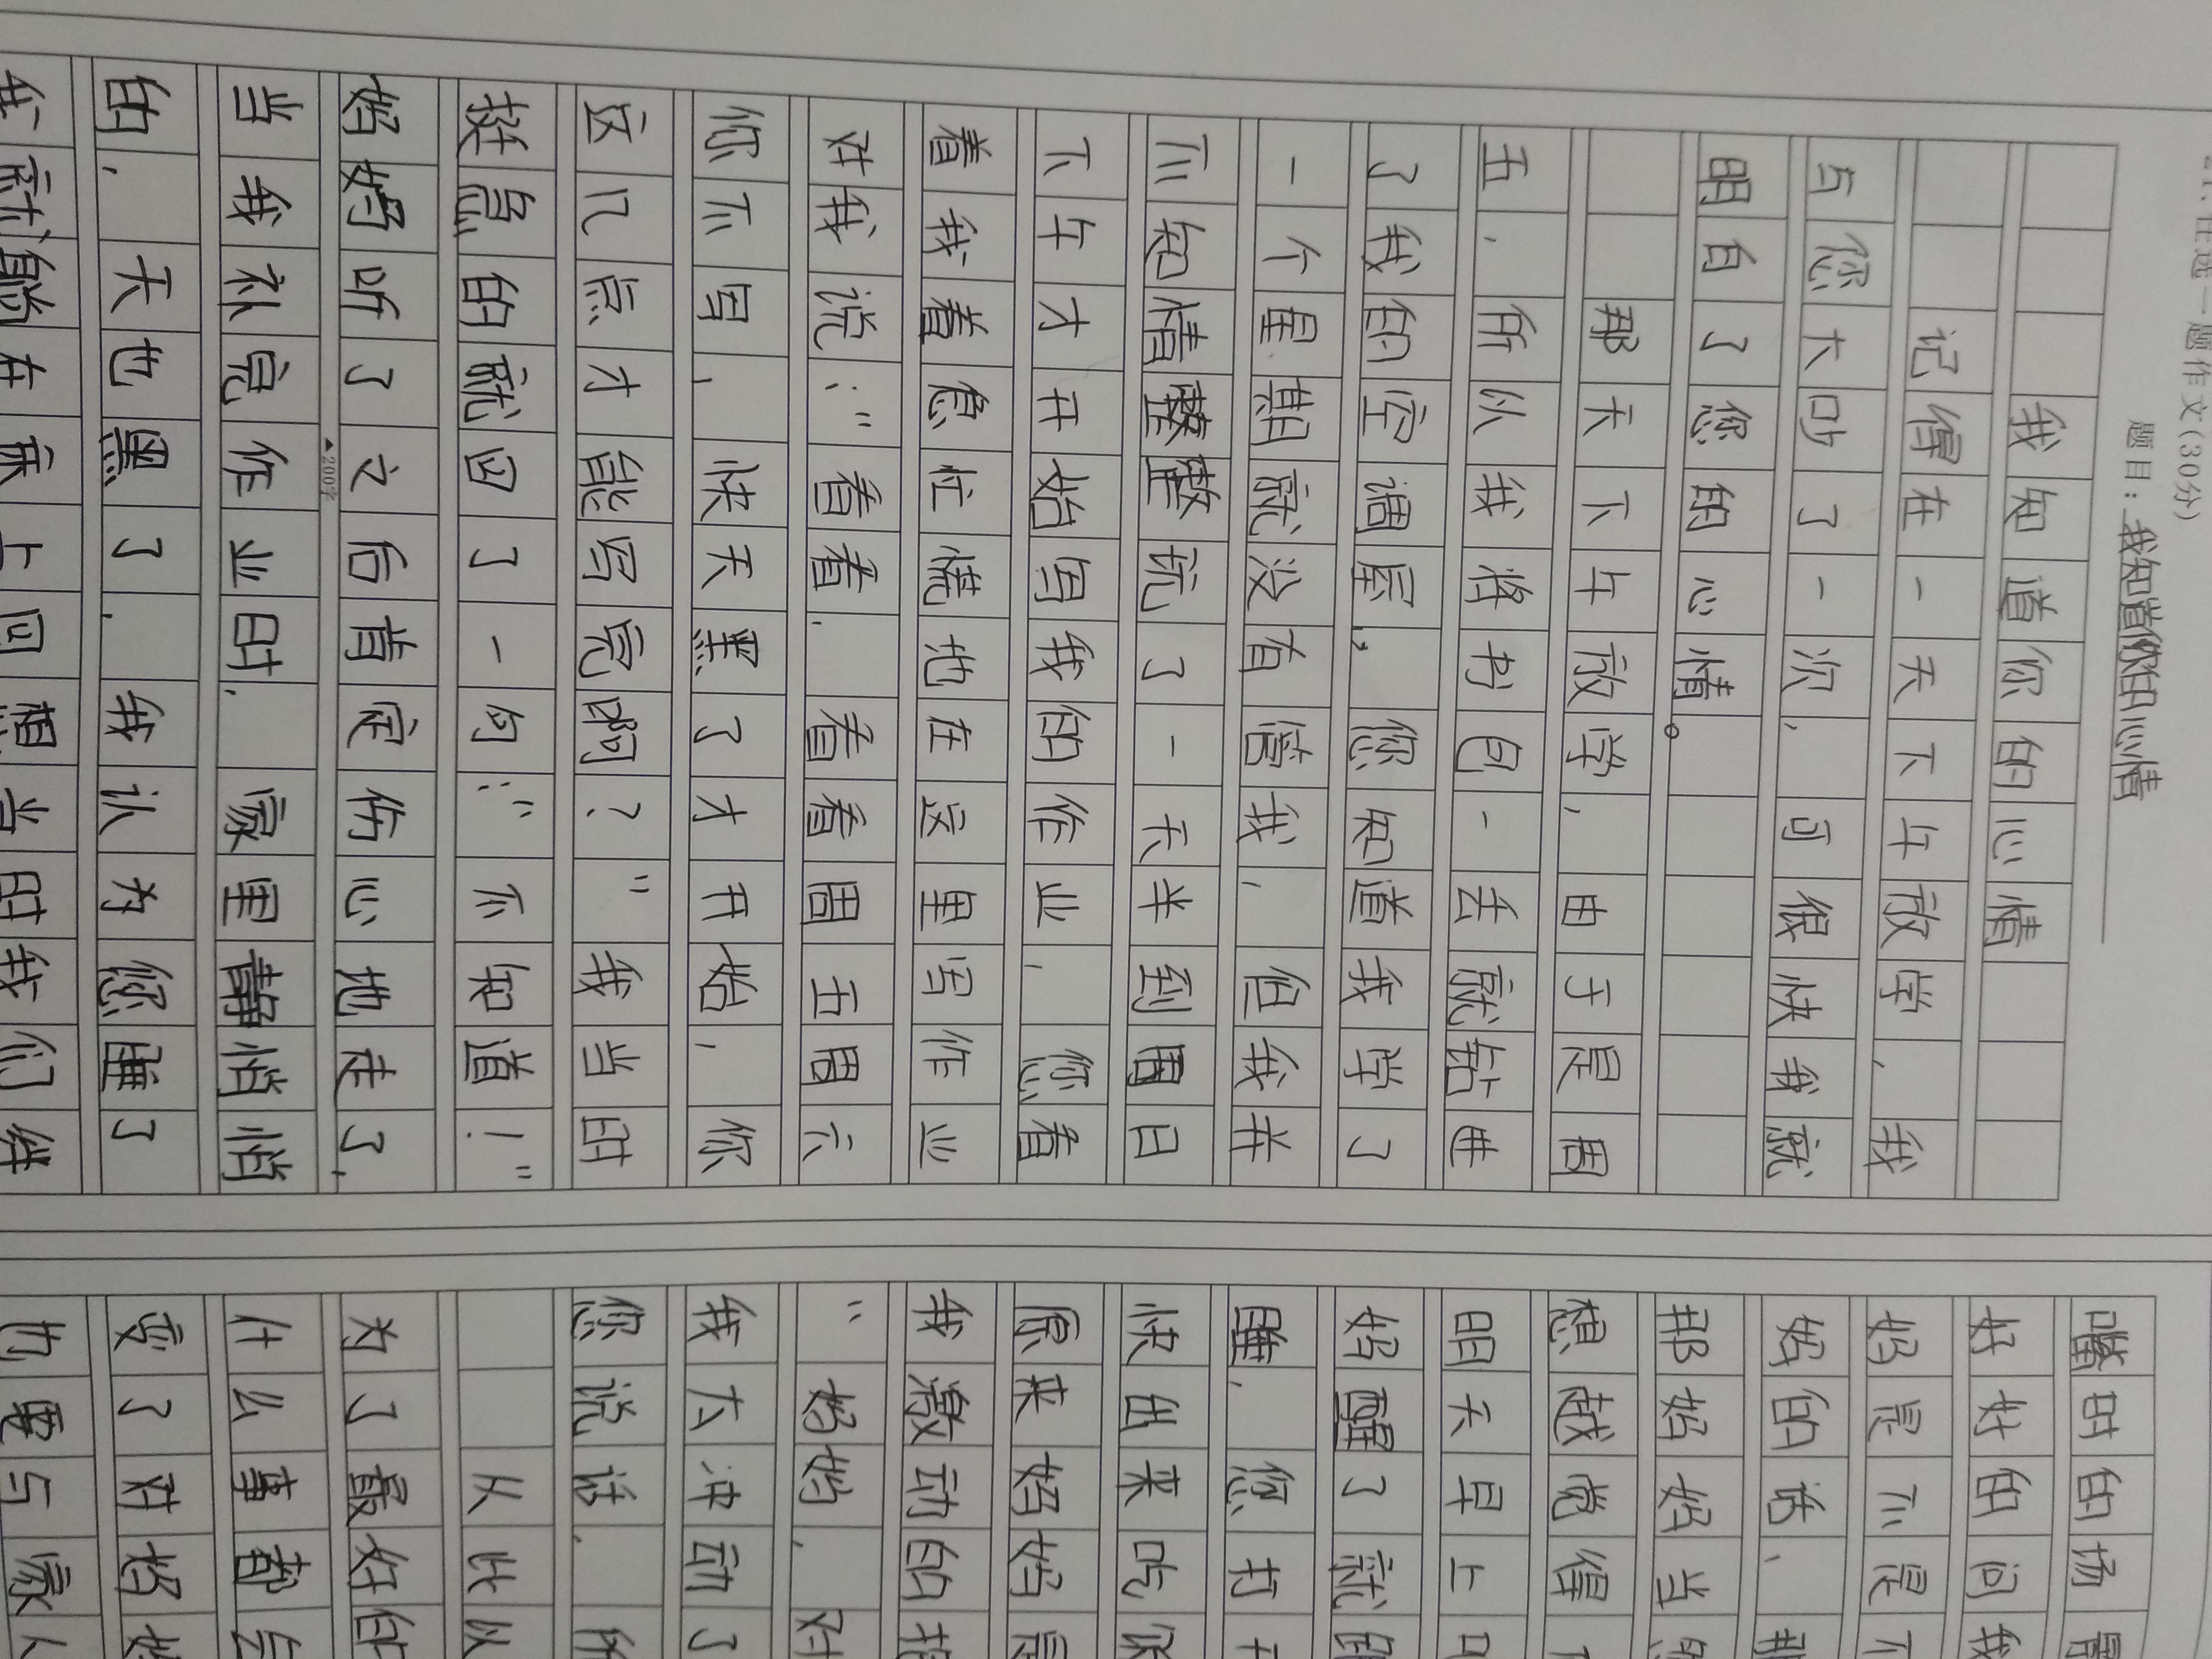 任选一题作文(30分)
题目:我知道你的心情
我知道你的心情
记得在一天下午放学,我
与您大吵了一次,可很快我就
明白了您的心情。
那天下午放学,由于是周
五,所以我将书包一丢就钻进
了我的空调屋,您知道我学了
一个星期就没有管我,但我并
不知情整整玩了一天半到周日
下午才开始写我的作业,您看
着我着急忙慌地在这里写作业
对我说:“看看,看看周五周六
你不写,快天黑了才开始,你
这几点才能写完啊?”我当时
挺急的就回了一句:“不知道!”
妈妈听了之后肯定伤心地走了,
▲200字
当我补完作业时,家里静悄悄
的,天也黑了,我认为您睡了
我就躺在床上回想当时我们拌
嘴时的场景
好好的问我
妈是不是不
妈的话,那
那妈妈当然
想越觉得
明天早上
妈醒了就
睡,您打开
快出来吃饭
原来妈妈
我激动的
“妈妈,对
我太冲动了
您说话,
从此以
为了最好的
什么事都会
变了对妈妈
也更与家人